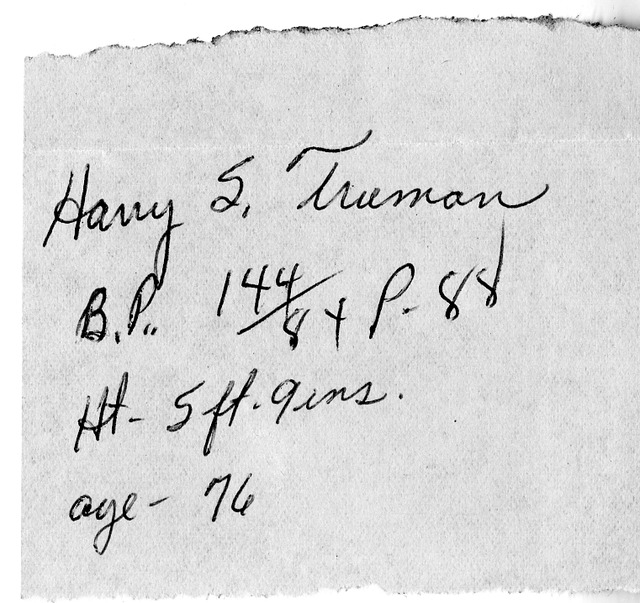 Harry S. Trueman
B.P.. 144/84 P- 88
Ht- 5 ft. 9 ins.
age- 76